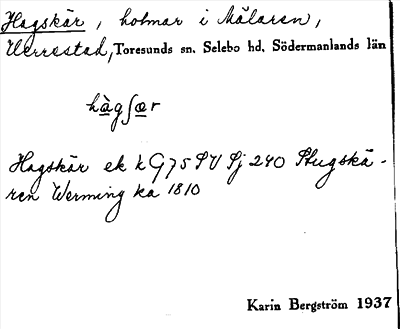 Hagskär, holmar i Mälaren,
Werrestad, Toresunds sn. Selebo hd. Södermanlands län
hàgʃær
Hagskär ek k G75 SV Sj 240 Stugskä-
ren Werming ka 1810
Karin Bergström 1937